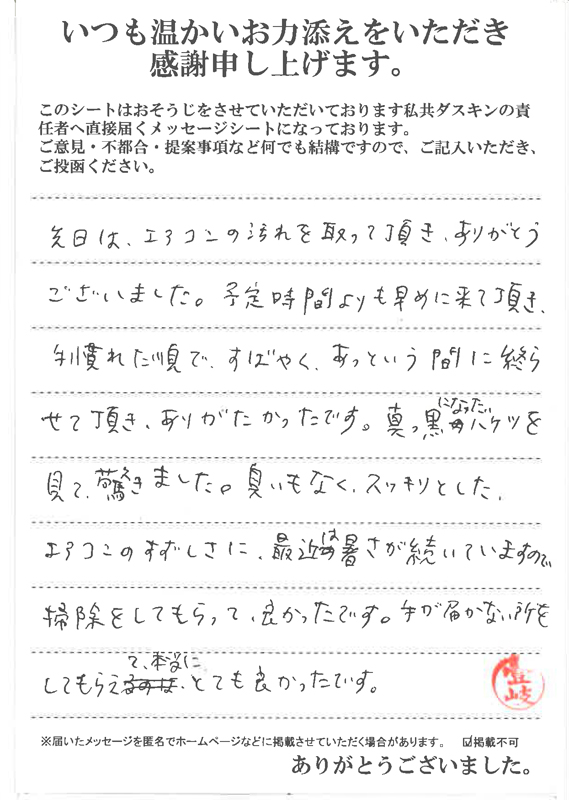 いつも温かいお力添えをいただき
感謝申し上げます。
このシートはおそうじをさせていただいております私共ダスキンの責
任者へ直接届くメッセージシートになっております。
ご意見・不都合・提案事項など何でも結構ですので、ご記入いただき、
ご投函ください。
先日は、エアコンの汚れを取って頂き、ありがとう
ございました。予定時間よりも早めに来て頂き、
手慣れた順で、すばやく、あっという間に終ら
せて頂き、ありがたかったです。真っ黒になったバケツを
見て、驚きました。臭いもなく、スッキリとした、
エアコンのすずしさに、最近は暑さが続いていますので
掃除をしてもらって、良かったです。手が届かない所を
してもらえて、本当に、とても良かったです。
壹岐
※届いたメッセージを匿名でホームページなどに掲載させていただく場合があります。 ☑掲載不可
ありがとうございました。